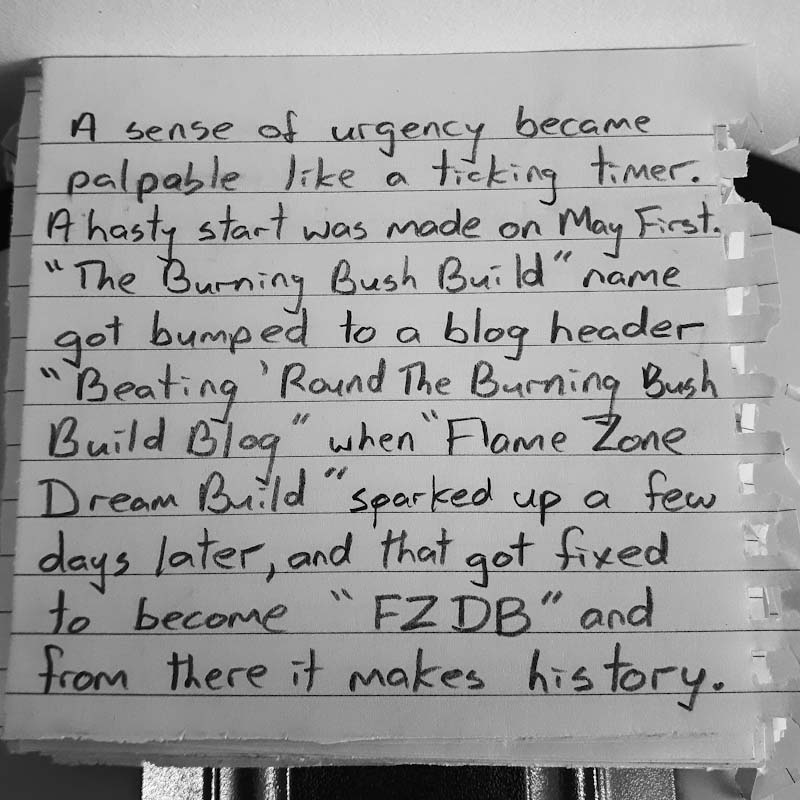 A sense of urgency became
palpable like a ticking timer.
A hasty start was made on May First.
"The Burning Bush Build" name
got bumped to a blog header
"Beating 'Round The Burning Bush
Build Blog" when "Flame Zone
Dream Build" sparked up a few
days later, and that got fixed
to become "FZDB" and
from there it makes history.